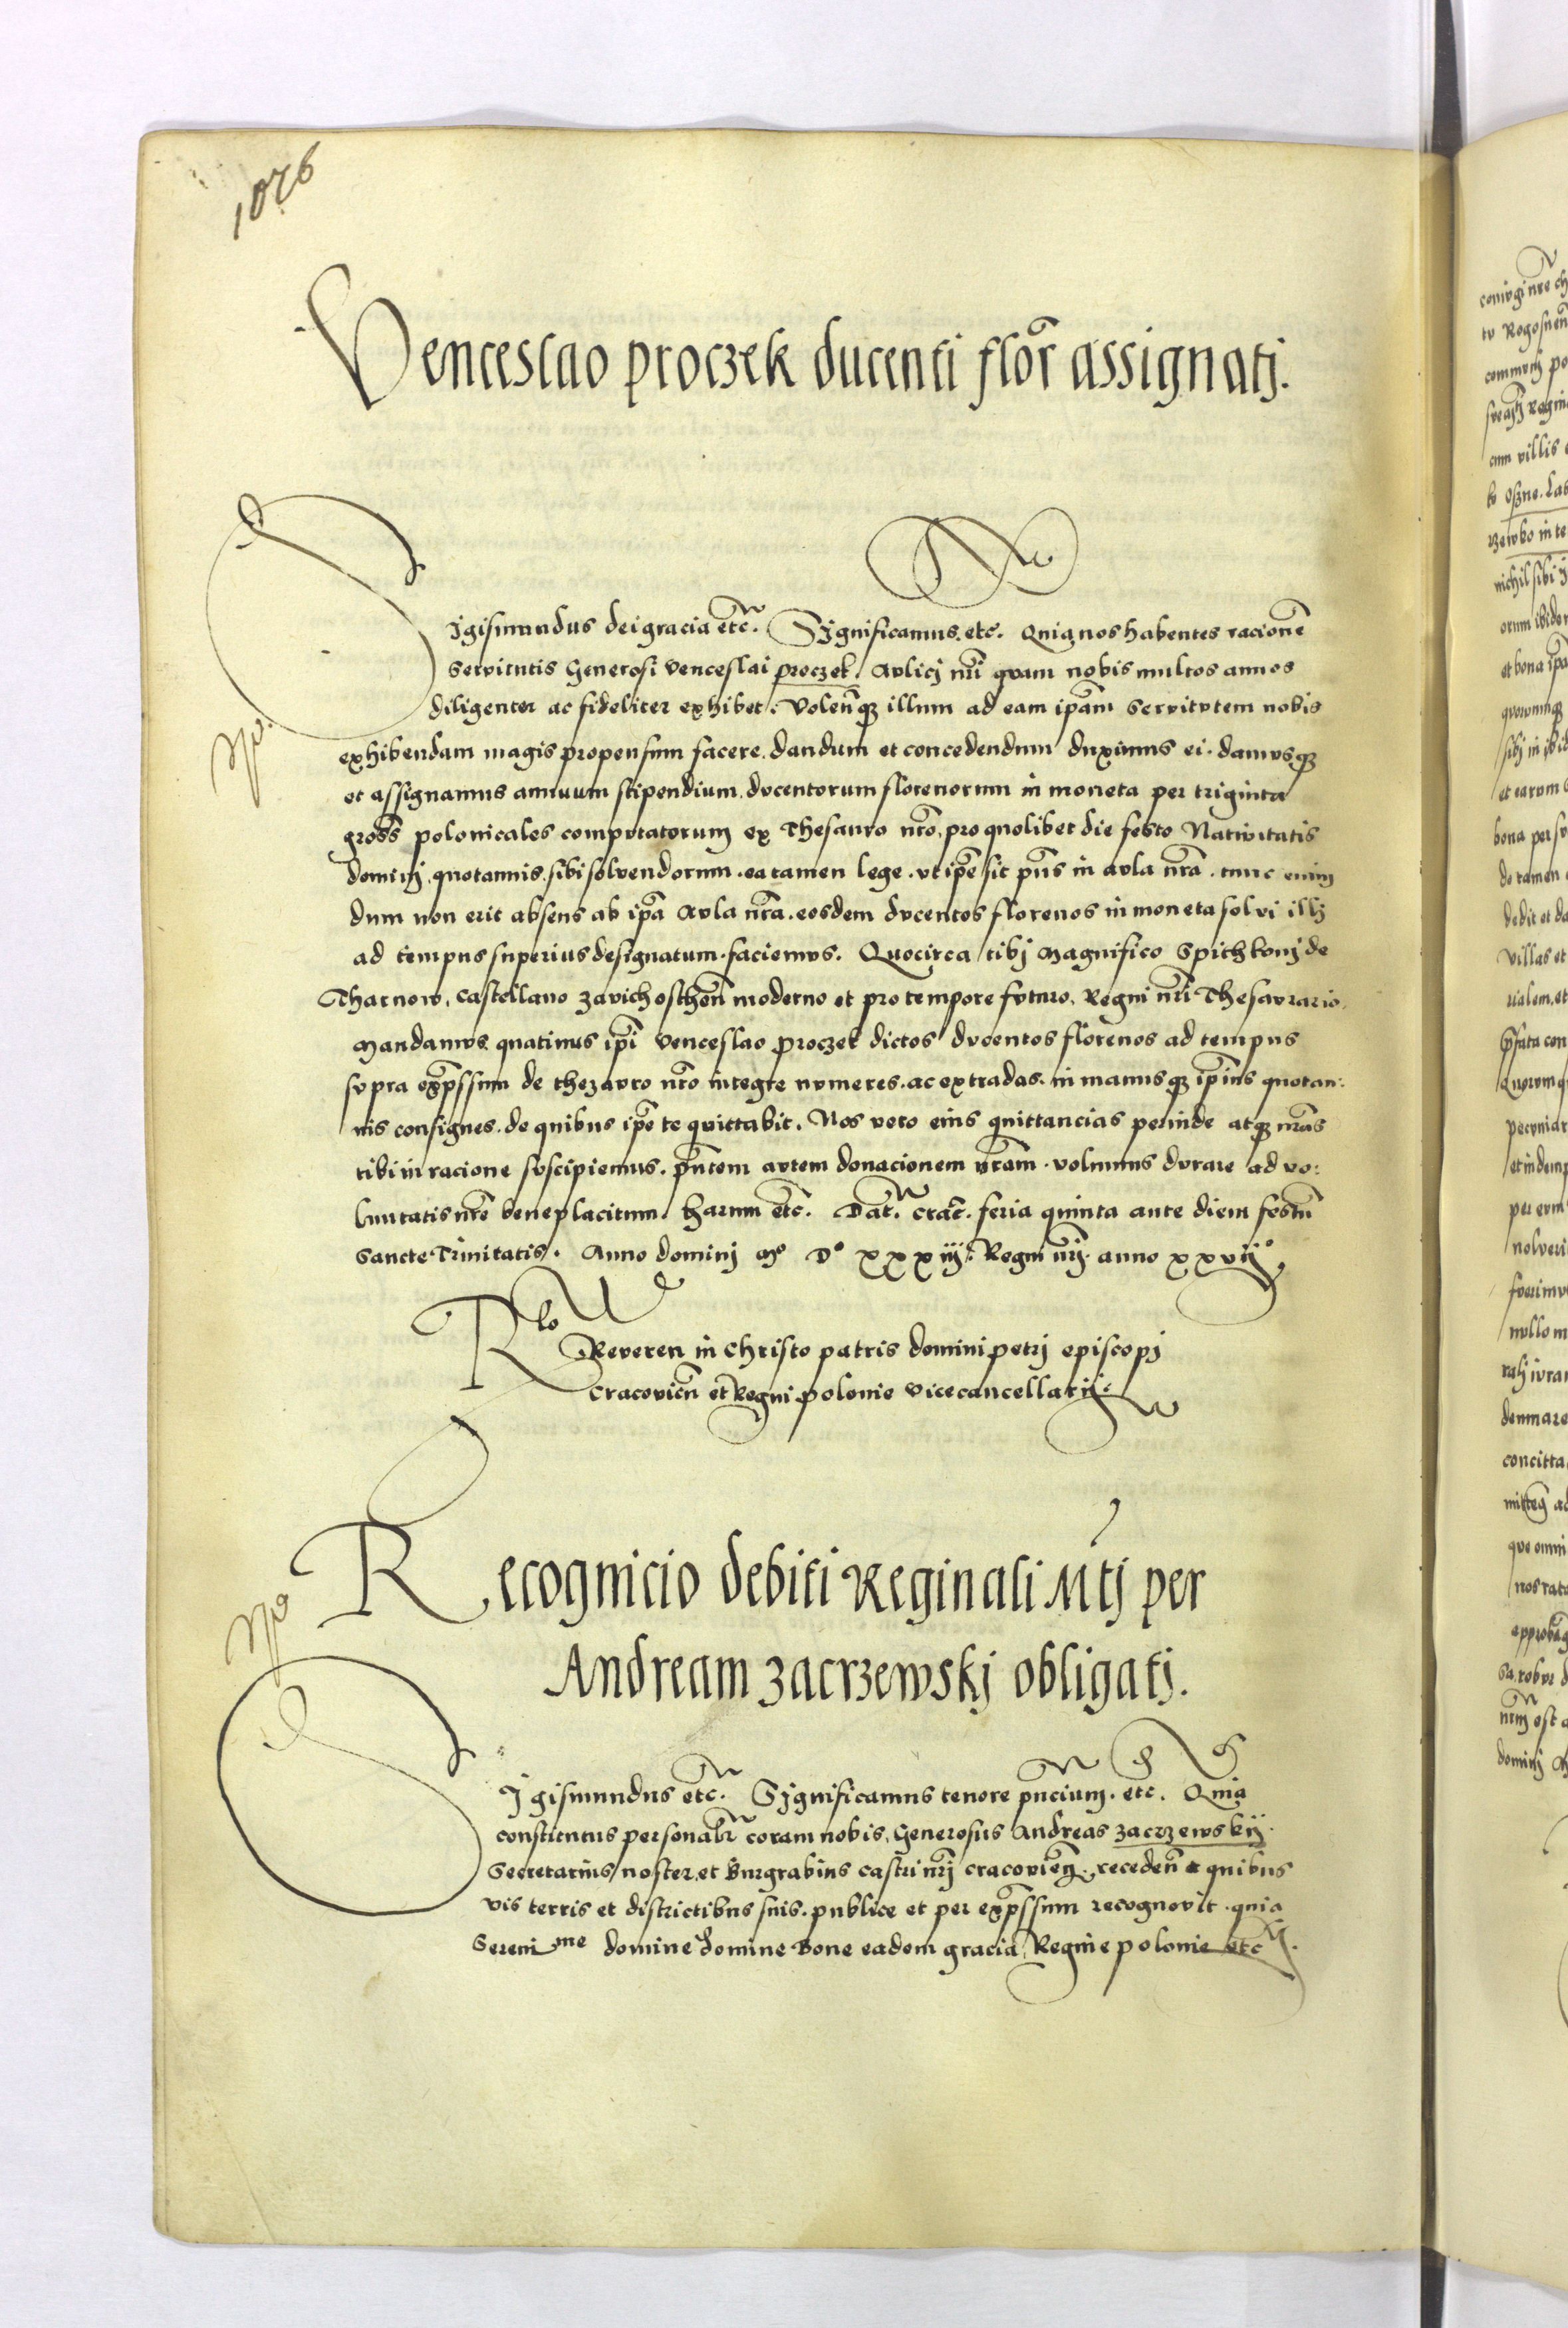 1076
Venceslao proczek ducenti flor̃ assignatj.
Sigismundus dei gracia etc̃. Significamus. etc. Quia nos habentes racionẽ
Servitutis Generosi venceslai proczek. Avlicj nr̃i qvam nobis multos annos
diligenter ac fideliter exhibet. Volen̄qꝫ illum ad eam ip̃am Servitvtem nobis
exhibendam magis propensum facere. dandum et concedendum duximus ei. damvsqꝫ
et assignamus annuum stipendium. dvcentorum florenorum in moneta per triginta
gross̃ polonicales compvtatorum ex Thesauro nr̃o. pro quolibet die festo Nativitatis
dominj. quotannis. sibi solvendorum. ea tamen lege. vt ip̃e sit pñs in avla nr̃a. tunc enim
dum non erit absens ab ip̃a Avla nr̃a. eosdem dvcentos florenos in moneta solvi illj
ad tempus superius designatum. faciemvs. Quocirca tibj Magnifico Spithkonj de
Tharnow, Castellano Zavichosthen̄ moderno et pro tempore fvtvro. Regni nr̃i Thesavrario.
Mandamvs quatinus ip̃i Venceslao proczek dictos dvcentos florenos ad tempus
svpra exp̃ssum de thezavro nr̃o integre nvmeres. ac extradas. in manusqꝫ ip̃ius quotan:
nis consignes. de quibus ip̃e te qvittabit. Nos vero eius quittancias perinde atqꝫ nr̃as
tibi in racione svscipiemus. p̃ntem avtem donacionem nr̃am. volumus dvrare ad vo:
luntatis nr̃e beneplacitum. harum etc̃. Dat̃. crac̃. feria quinta ante diem festũ
Sancte Trinitatis. Anno dominj Mº Dº xxxiij: Regni nr̃j. anno xxvijº
Rlo
Reveren in Christo patris domini petrj episcopj
Cracovien̄ et Regni polonie vicecancellarij.
Recognicio debiti Reginali Mtj per
Andream zacrzewskj obligatj.
Sigismundus etc̃. Significamus tenore p̃ncium. etc. Quia
constitutus personalr̃ coram nobis. Generosus Andreas zacrzewskij.
Secretarius noster. et Burgrabius castri nr̃j cracovien̄. receden̄ a quibus
vis terris et districtibus suis. publice et per exp̃ssum recognovit. quia
Serenime domine domine Bone eadem gracia Regine polonie etc.